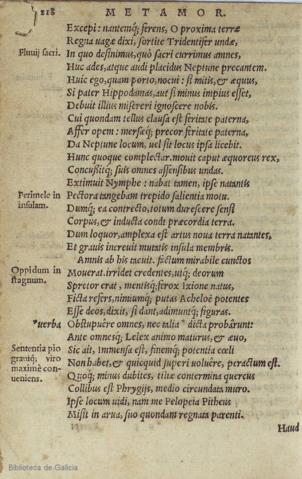 218 METAMOR.
Excepi: nantemq; ferens, O proxima terræ
Regna uagæ dixi, sortite Tridentifer undæ,
Fluuij sacri.
In quo desinimus, quò sacri currimus amnes,
Huc ades, atque audi placidus Neptune precantem.
Huic ego, quam porto, nocui: si mitis, & æquus,
Si pater Hippodamas, aut si minus impius esset,
Debuit illius misereri ignoscere nobis.
Cui quondam tellus clausa est feritate paterna,
Affer opem: mersæq; precor feritate paterna,
Da Neptune locum, uel sit locus ipsa licebit.
Hunc quoque complectar. mouit caput æquoreus rex,
Concussitq; suis omnes assensibus undas.
Extimuit Nymphe: nabat tamen, ipse natantis
Perimele in insulam.
Pectora tangebam trepido salientia motu.
Dumq; ea contrecto, totum durescere sensi
Corpus, & inducta condi præcordia terra.
Dum loquor, amplexa est artus noua terra natantes,
Et grauis increuit mutatis insula membris.
Amnis ab his tacuit. factum mirabile cunctos
Oppidum in stagnum.
Mouerat. irridet credentes, utq; deorum
Spretor erat, mentisq; ferox Ixione natus,
Ficta refers, nimiumq; putas Acheloë potentes
Esse deos, dixit, si dant, adimuntq; figuras.
*uerba
Obstupuêre omnes, nec talia * dicta probârunt:
Ante omnesq; Lelex animo maturus, & æuo,
Sententia pio grauiq; viro maximè conueniens.
Sic ait, Immensa est, finemq; potentia cœli
Non habet, & quicquid superi uoluêre, peractum est.
Quoq; minus dubites, tiliæ contermina quercus
Collibus est Phrygijs, medio circundata muro.
Ipse locum uidi, nam me Pelopeia Pitheus
Misit in arua, suo quondam regnata parenti.
Haud
Biblioteca de Galicia